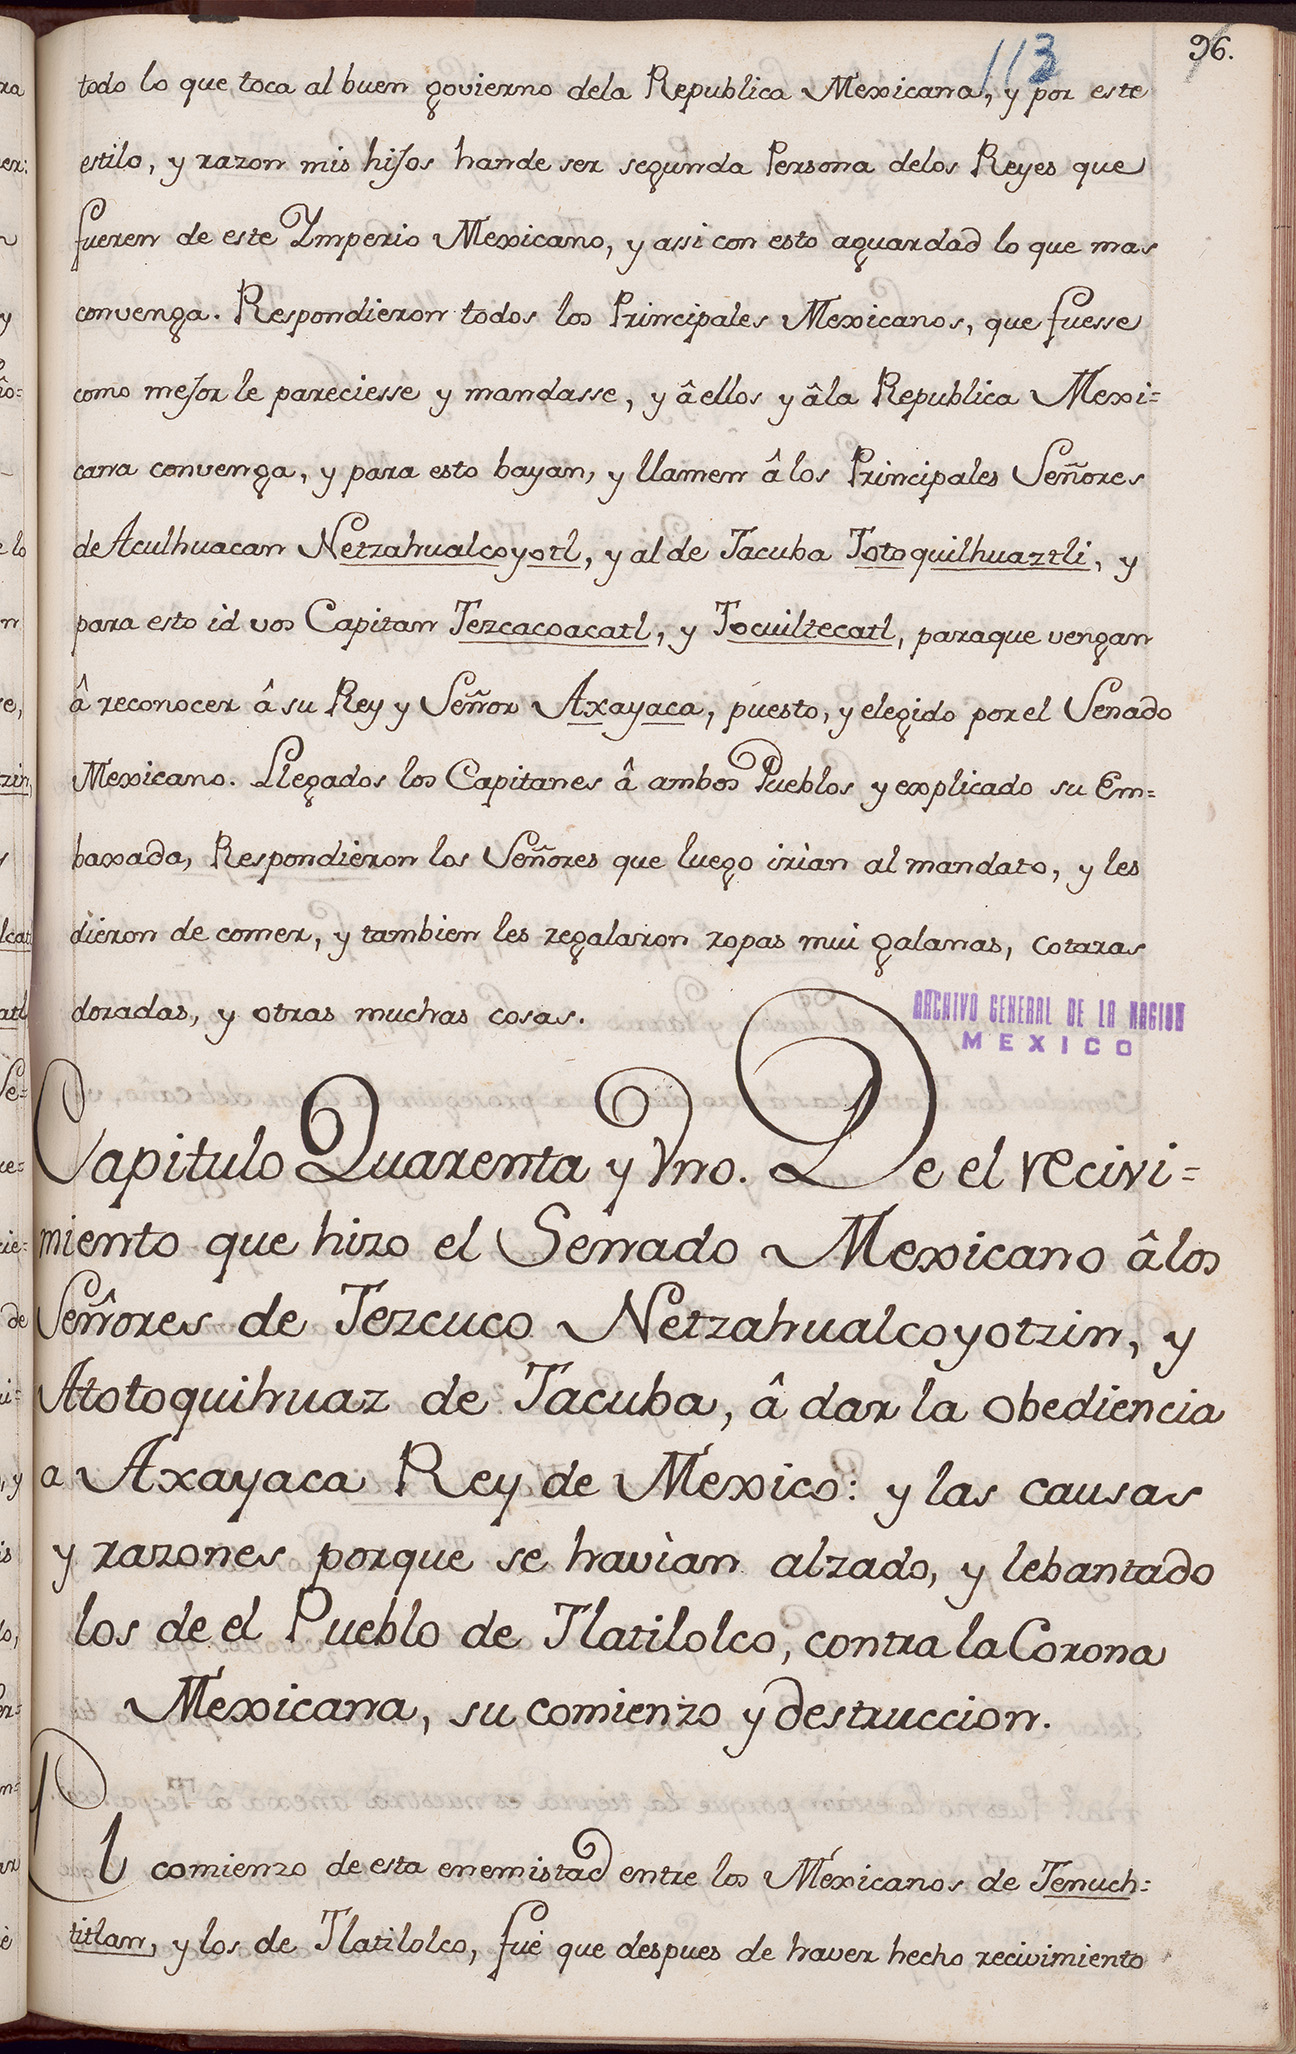 113
96.
todo lo que toca al buen govierno dela Republica Mexicana, y por este
estilo, y razon mis hijos hande ser segunda Persona delos Reyes que
fueren de este Imperio Mexicano, y assi con esto aguardad lo que mas
convenga. Respondieron todos los Principales Mexicanos, que fuesse
como mejor le pareciesse y mandasse, y â ellos y â la Republica Mexi=
cana convenga, y para esto bayan, y llamen â los Principales Señores
de Aculhuacan Netzahualcoyotl, y al de Tacuba Totoquilhuaztli, y
para esto id vos Capitan Tezcacoacatl, y Tocuiltecatl, paraque vengan
â reconocer â su Rey y Señor Axayaca, puesto, y elegido por el Senado
Mexicano. Llegados los Capitanes â ambos Pueblos y explicado su Em=
baxada, Respondieron los Señores que luego irian al mandato, y les
dieron de comer, y tambien les regalaron ropas mui galanas, cotaras
doradas, y otras muchas cosas.
ARCHIVO GENERAL DE LA NACION
MEXICO
Capitulo Quarenta y Vno. De el recivi=
miento que hizo el Senado Mexicano â los
Señores de Tezcuco Netzahualcoyotzin, y
Atotoquihuaz de Tacuba, â dar la obediencia
a Axayaca Rey de Mexico: y las causas
y razones porque se havian alzado, y lebantado
los de el Pueblo de Tlatilolco, contra la Corona
Mexicana, su comienzo y destruccion.
El comienzo de esta enemistad entre los Mexicanos de Tenuch=
titlan, y los de Tlatilolco, fué que despues de haver hecho recivimiento